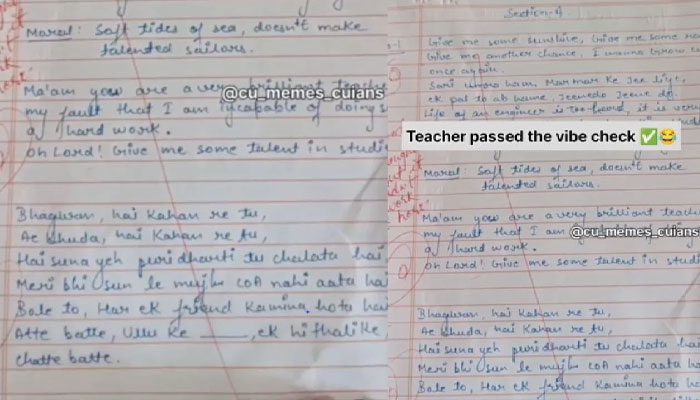 Moral: Soft tides of sea, doesn't make
talented sailors.
Ma'am you are a very brilliant teach
@cu_memes_cuians
my fault that I am incapable of doing s
a hard work.
Oh Lord! Give me some talent in studie
Bhagwan, hai Kahan re tu,
Ae Khuda, hai Kahan re tu,
Hai suna yeh puri dharti tu chalata hai
Meri bhi sun le mujhe COA nahi aata hai
Bole to, Har ek friend Kamina hota hai
Atte batte, Ullu ke ____, ek hi thali ke
chatte batte.
Section-A
Give me some sunshine, Give me some ra
Give me another chance, I wanna Grow u
once again.
Sari umra ham Mar mar ke Jee liye,
ek pal to ab hame, Jeenedo Jeene do.
Life of an engineer is too hard, it is ver
Teacher passed the vibe check ✅😂
Moral: Soft tides of sea, doesn't make
talented sailors.
Ma'am you are a very brilliant teach
my fault that I am
@cu_memes_cuians
a hard work.
Oh Lord! Give me some talent in studi
Bhagwan, hai Kahan re tu,
Ae Khuda, hai Kahan re tu,
Hai suna yeh puri dharti tu chalata
Meri bhi sun le mujhe COA nahi aata ha
Bole to, Har ek friend Kamina hota h